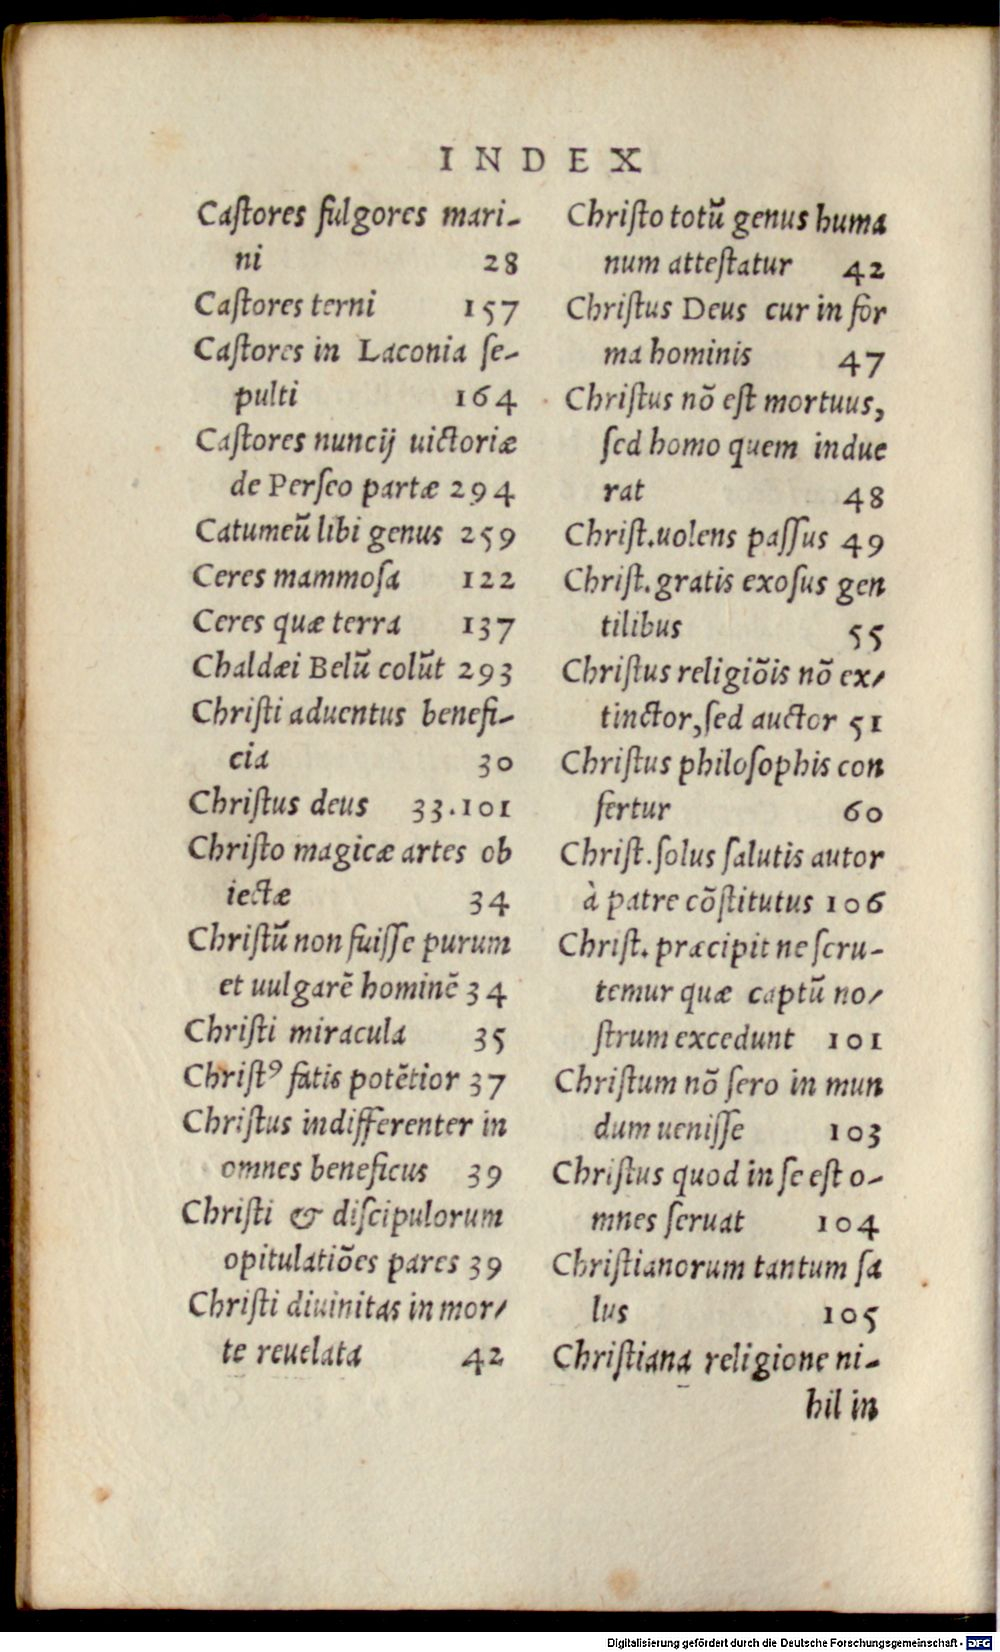 INDEX
Castores fulgores mari-
ni 28
Castores terni 157
Castores in Laconia se-
pulti 164
Castores nuncij uictoriæ
de Perseo partæ 294
Catumeū libi genus 259
Ceres mammosa 122
Ceres quæ terra 137
Chaldæi Belū colūt 293
Christi aduentus benefi-
cia 30
Christus deus 33.101
Christo magicæ artes ob
iectæ 34
Christū non fuisse purum
et uulgarē hominē 34
Christi miracula 35
Christꝰ fatis potētior 37
Christus indifferenter in
omnes beneficus 39
Christi & discipulorum
opitulatiōes pares 39
Christi diuinitas in mor/
te reuelata 42
Christo totū genus huma
num attestatur 42
Christus Deus cur in for
ma hominis 47
Christus nō est mortuus,
sed homo quem indue
rat 48
Christ.uolens passus 49
Christ.gratis exosus gen
tilibus 55
Christus religiōis nō ex/
tinctor,sed auctor 51
Christus philosophis con
fertur 60
Christ.solus salutis autor
à patre cōstitutus 106
Christ. præcipit ne scru-
temur quæ captū no/
strum excedunt 101
Christum nō sero in mun
dum uenisse 103
Christus quod in se est o-
mnes seruat 104
Christianorum tantum sa
lus 105
Christiana religione ni-
hil in
Digitalisierung gefördert durch die Deutsche Forschungsgemeinschaft - DFG